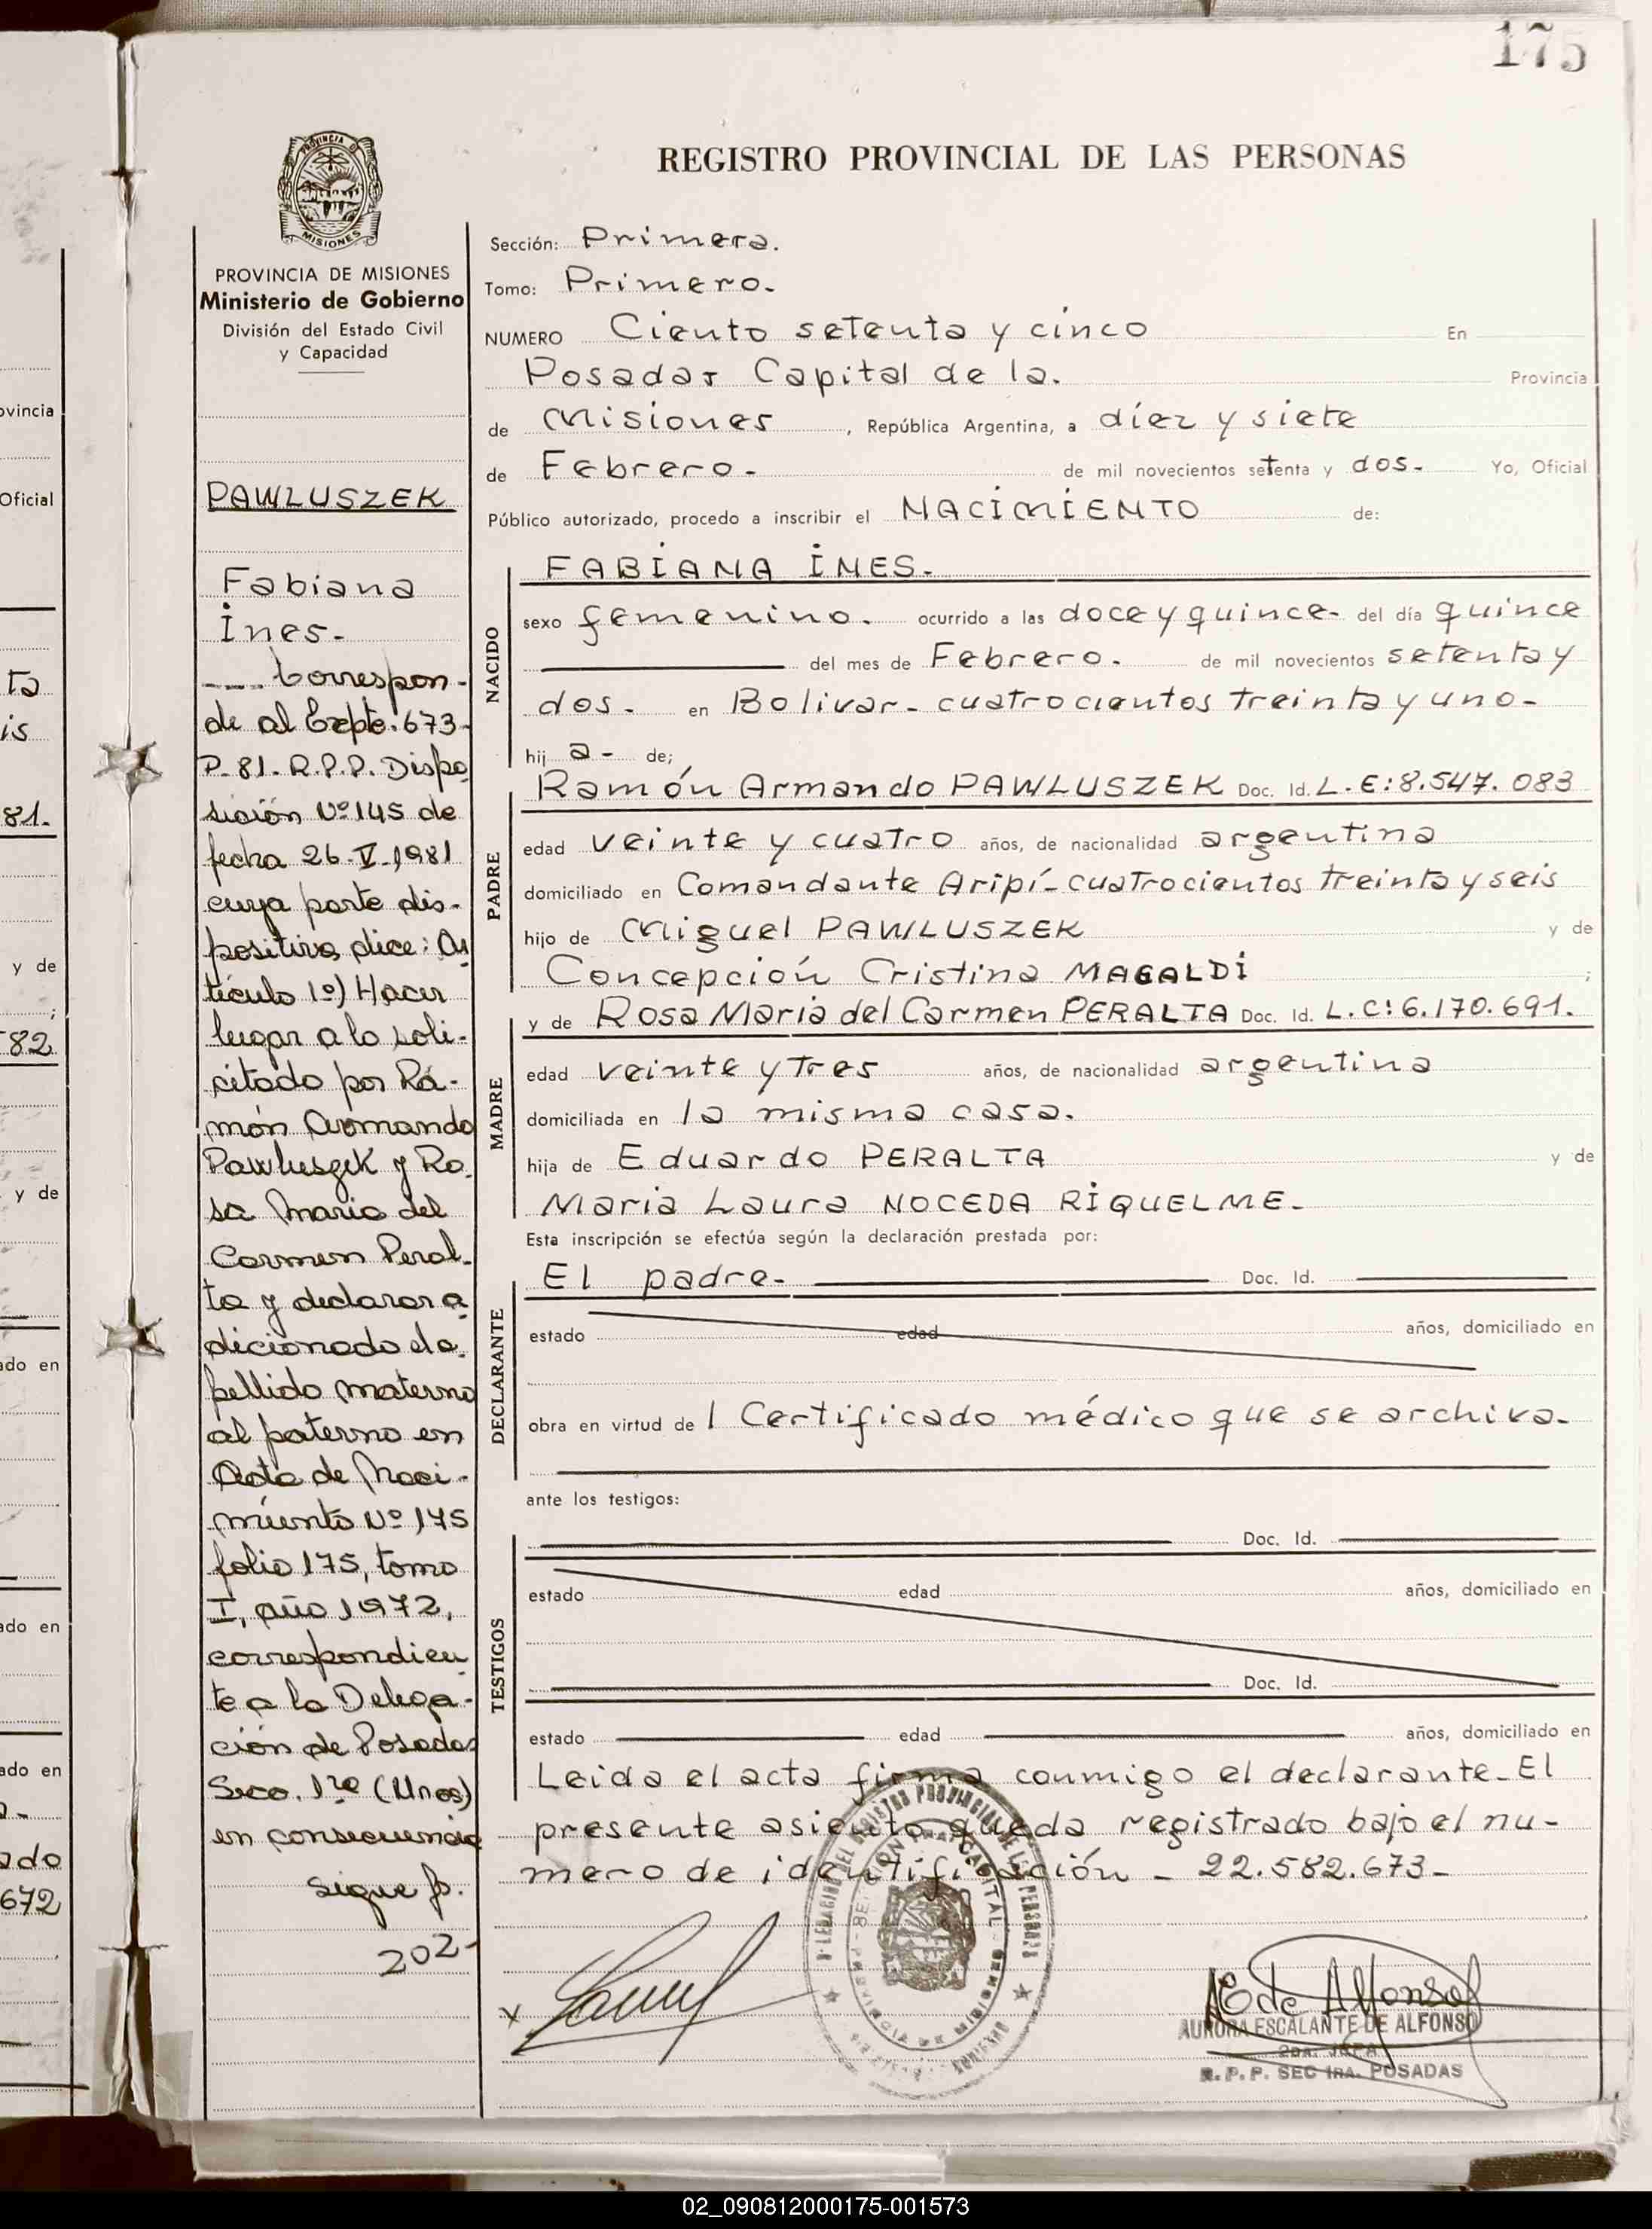 175
REGISTRO PROVINCIAL DE LAS PERSONAS
PROVINCIA DE
MISIONES
PROVINCIA DE MISIONES
Ministerio de Gobierno
División del Estado Civil
y Capacidad
PAWLUSZEK
Fabiana
Ines.-
Correspon-
de al Expte. 673-
P-81-R.P.P. Dispo
sición Nº 145 de
fecha 26-V-1981
cuya parte dis-
positiva dice: Ar
tículo 1º) Hacer
lugar a lo soli-
citado por Ra-
món Armando
Pawluszek y Ro
sa Maria del
Carmen Peral-
ta y declarar a
dicionado el a
pellido materno
al paterno en
Acta de Naci-
miento Nº 175
folio 175, tomo
I, año 1972,
correspondien
te a la Delega-
ción de Posadas
Secc. 1ra (Unos)
en consecuencia
sigue fo.
202-
Sección: Primera.
Tomo: Primero.-
NUMERO Ciento setenta y cinco En
Posadas Capital de la. Provincia
de Misiones, República Argentina, a diez y siete
de Febrero.- de mil novecientos setenta y dos.- Yo, Oficial
Público autorizado, procedo a inscribir el NACIMIENTO de:
NACIDO
FABIANA INES.-
sexo femenino. ocurrido a las doce y quince- del día quince
del mes de Febrero. de mil novecientos setenta y
dos.- en Bolivar- cuatrocientos treinta y uno-
hij a- de;
PADRE
Ramón Armando PAWLUSZEK Doc. Id. L.E:8.547.083
edad veinte y cuatro años, de nacionalidad argentina
domiciliado en Comandante Aripí-cuatrocientos treinta y seis
hijo de Miguel PAWLUSZEK y de
Concepción Cristina MAGALDI ;
MADRE
y de Rosa Maria del Carmen PERALTA Doc. Id. L.C:6.170.691.
edad veinte y tres años, de nacionalidad argentina
domiciliada en la misma casa.
hija de Eduardo PERALTA y de
Maria Laura NOCEDA RIQUELME.-
Esta inscripción se efectúa según la declaración prestada por:
DECLARANTE
El padre.- Doc. Id.
estado edad años, domiciliado en
obra en virtud de l Certificado médico que se archiva.-
ante los testigos:
TESTIGOS
Doc. Id.
estado edad años, domiciliado en
Doc. Id.
estado edad años, domiciliado en
Leida el acta firma conmigo el declarante.- El
presente asiento queda registrado bajo el nu-
mero de identificación - 22.582.673-
AURORA ESCALANTE DE ALFONSO
2DA. JEFA
R.P.P. SEC 1RA. POSADAS
ovincia
Oficial
ta
is
81.-
y de
82
y de
ado en
ado en
ado en
ado
672
02_090812000175-001573